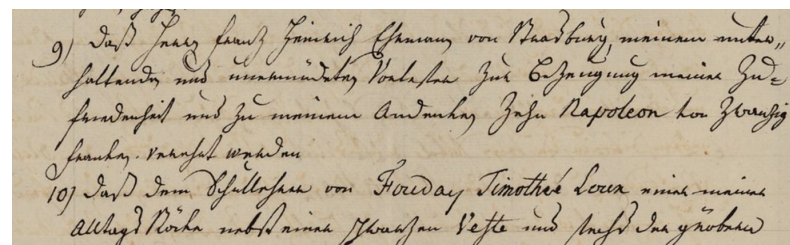 9) daß Herrn Franz Heinrich Ehrmann von Strasburg, meinem unter-
haltenden und unermüdeten Vorleser zur Bezeugung meiner Zu-
friedenheit und zu meinem Andenken Zehn Napoleon von Zwanzig
Franken verehrt werden
10) daß dem Schullehrer von Fouday Timothée einer meiner
Alltags Röcke nebst einer schwarzen Veste und sechs der